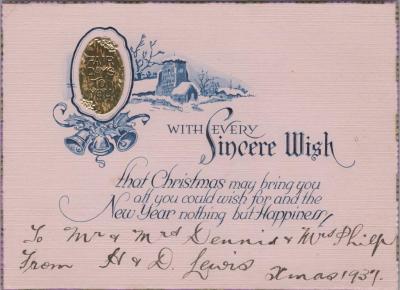 WITH EVERY
Sincere Wish
that Christmas may bring you
all you could wish for and the
New Year nothing but Happiness
To Mr & Mrs Dennis & Mrs Philp
From H & D. Lewis
Xmas 1937.